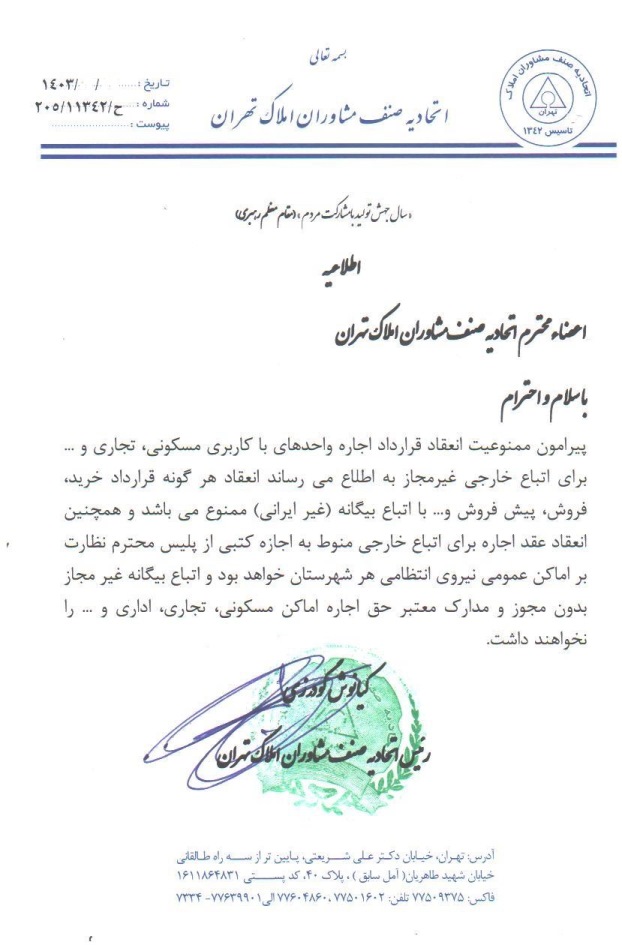 بسمه تعالی
اتحادیه صنف مشاوران املاک تهران
تاریخ : ...... / ... / ۱۴۰۳
شماره : ...... ۲۰۵/۱۱۳۴۲/ح
پیوست : ..................
اتحادیه صنف مشاوران املاک
تهران
تاسیس ۱۳۴۲
«سال جهش تولید با مشارکت مردم» (مقام معظم رهبری)
اطلاعیه
اعضاء محترم اتحادیه صنف مشاوران املاک تهران
با سلام و احترام
پیرامون ممنوعیت انعقاد قرارداد اجاره واحدهای با کاربری مسکونی، تجاری و ...
برای اتباع خارجی غیرمجاز به اطلاع می رساند انعقاد هر گونه قرارداد خرید،
فروش، پیش فروش و... با اتباع بیگانه (غیر ایرانی) ممنوع می باشد و همچنین
انعقاد عقد اجاره برای اتباع خارجی منوط به اجازه کتبی از پلیس محترم نظارت
بر اماکن عمومی نیروی انتظامی هر شهرستان خواهد بود و اتباع بیگانه غیر مجاز
بدون مجوز و مدارک معتبر حق اجاره اماکن مسکونی، تجاری، اداری و ... را
نخواهند داشت.
کیانوش گودرزی
رئیس اتحادیه صنف مشاوران املاک تهران
آدرس: تهران، خیابان دکتر علی شریعتی، پایین تر از سه راه طالقانی
خیابان شهید طاهریان( آمل سابق ) ، پلاک ۴۰، کد پستی ۱۶۱۱۸۶۴۸۳۱
فاکس: ۷۷۵۰۹۳۷۵ تلفن: ۷۷۵۰۱۶۰۲ ، ۷۷۶۰۴۸۶۰ الی ۷۷۶۳۹۹۰۱- ۷۳۳۴